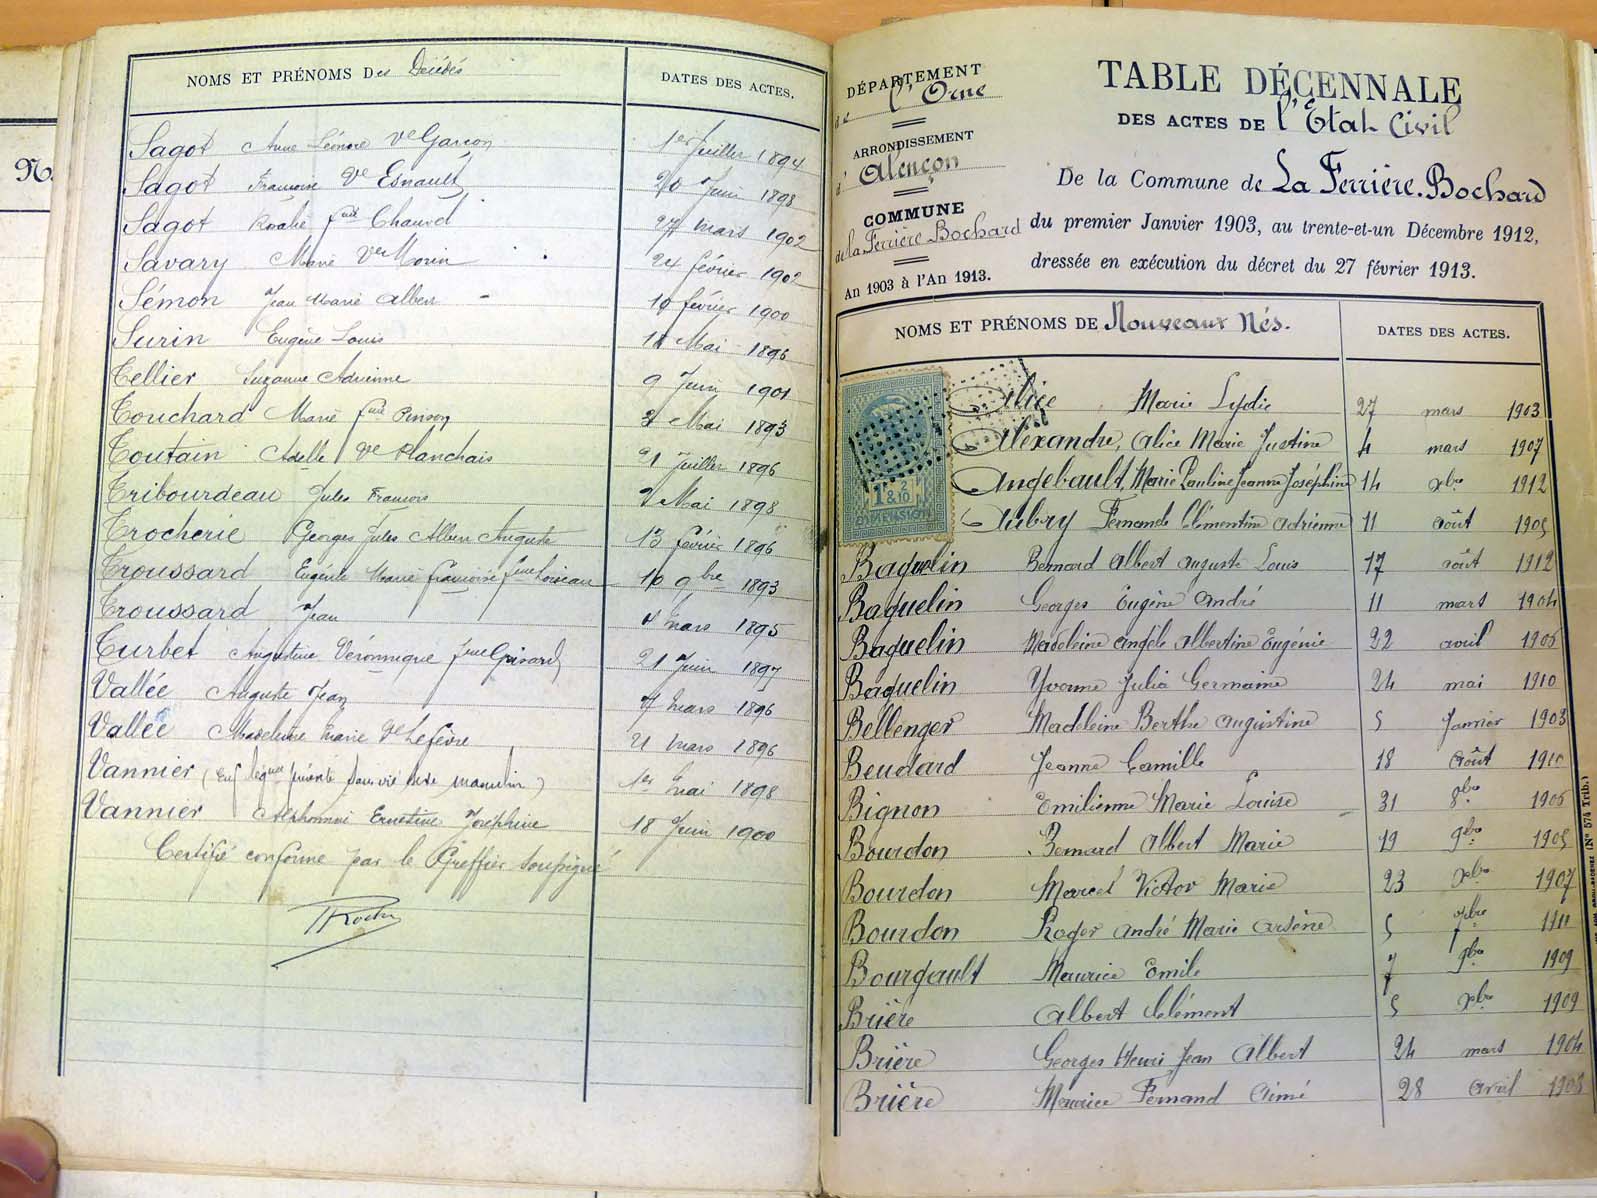 NOMS ET PRÉNOMS Des Décédés
DATES DES ACTES.
Sagot Anne Léonore Ve Garçon 1er Juillet 1894
Sagot Françoise Ve Esnault 20 Juin 1898
Sagot Rosalie fme Chauvel 27 Mars 1902
Savary Marie Ve Morin 24 février 1902
Sémon Jean Marie Albert 10 février 1900
Surin Eugène Louis Mai 1896
Tellier Suzanne Adrienne 9 Juin 1901
Touchard Marie fme Pinson Mai 1893
Toutain Adelle Ve Planchais 21 Juillet 1896
Tribourdeau Jules François Mai 1898
Trocherie Georges Jules Albert Auguste 13 février 1896
Troussard Eugénie Marie françoise fme Loiseau 10 9bre 1893
Troussard Jean 4 Mars 1895
Turbet Augustine Véronnique fme Guisard 21 Juin 1897
Vallée Auguste Jean Mars 1896
Vallée Madeleine Marie Ve Lefèvre 21 Mars 1896
Vannier (Enf présenté sans vie sexe masculin) 1er Mai 1898
Vannier Alphonsine Ernestine Joséphine 18 Juin 1900
Certifié conforme par le Greffier soussigné
N
DÉPARTEMENT
de l'Orne
ARRONDISSEMENT
d'Alençon
COMMUNE
de la Ferrière Bochard
An 1903 à l'An 1913.
TABLE DÉCENNALE
DES ACTES DE l'Etat Civil
De la Commune de La Ferrière-Bochard
du premier Janvier 1903, au trente-et-un Décembre 1912,
dressée en exécution du décret du 27 février 1913.
NOMS ET PRÉNOMS DE Nouveaux Nés.
DATES DES ACTES.
1 & 2/10
DIMENSION
Alice Marie Lydie 27 mars 1903
Alexandre, Alice Marie Justine 4 mars 1907
Angebault, Marie Pauline Jeanne Joséphine 14 xbre 1912
Aubry Fernande Clémentine Adrienne 11 août 1905
Baquelin Bernard Albert Auguste Louis 17 août 1912
Baquelin Georges Eugène André 11 mars 1904
Baquelin Madeleine Angèle Albertine Eugénie 22 avril 1906
Baquelin Yvonne Julia Germaine 24 mai 1910
Bellenger Madeleine Berthe Augustine 5 Janvier 1903
Beudard Jeanne Camille 18 Août 1910
Bignon Emilienne Marie Louise 31 8bre 1906
Bourdon Bernard Albert Marie 19 9bre 1905
Bourdon Marcel Victor Marie 23 xbre 1907
Bourdon Roger André Marie Arsène 5 7bre 1911
Bourgault Maurice Emile 7 9bre 1909
Brière Albert Clément 5 xbre 1909
Brière Georges Henri Jean Albert 24 mars 1904
Brière Maurice Fernand Aimé 28 avril 1908
(No 574 Trib.)